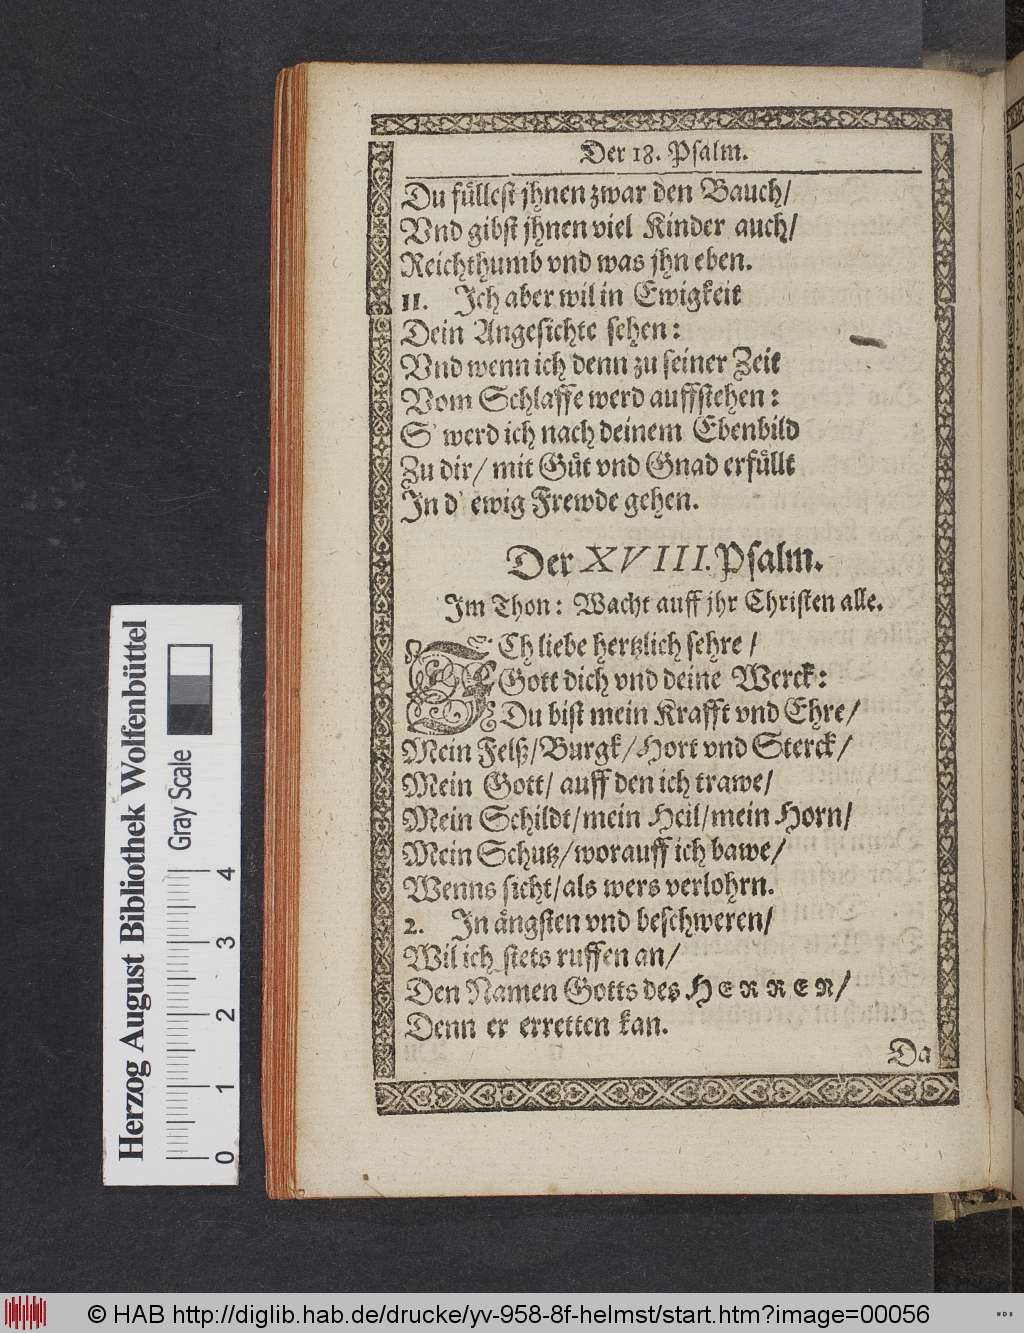 Der 18. Psalm.
Du füllest jhnen zwar den Bauch/
Vnd gibst jhnen viel Kinder auch/
Reichthumb vnd was jhn eben.
11. Ich aber wil in Ewigkeit
Dein Angesichte sehen:
Vnd wenn ich denn zu seiner Zeit
Vom Schlaffe werd auffstehen:
S' werd ich nach deinem Ebenbild
Zu dir/ mit Güt vnd Gnad erfüllt
In d' ewig Frewde gehen.
Der XVIII. Psalm.
Im Thon: Wacht auff jhr Christen alle.
ICh liebe hertzlich sehre/
Gott dich vnd deine Werck:
Du bist mein Krafft vnd Ehre/
Mein Felß/Burgk/Hort vnd Sterck/
Mein Gott/ auff den ich trawe/
Mein Schildt/mein Heil/mein Horn/
Mein Schutz/worauff ich bawe/
Wenns sicht/als wers verlohrn.
2. In ängsten vnd beschweren/
Wil ich stets ruffen an/
Den Namen Gotts des HERREN/
Denn er erretten kan.
Da
Herzog August Bibliothek Wolfenbüttel
Gray Scale
0 1 2 3 4
© HAB http://diglib.hab.de/drucke/yv-958-8f-helmst/start.htm?image=00056